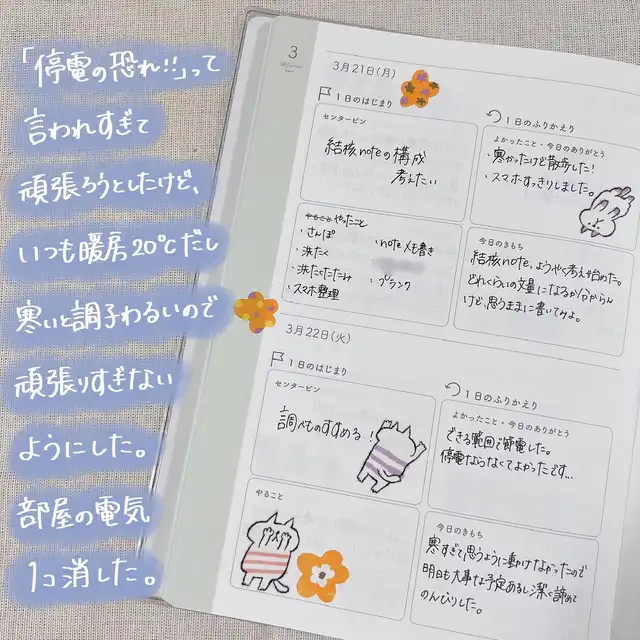 「停電の恐れ!!」って
言われすぎて
頑張ろうとしたけど、
いつも暖房20℃だし
寒いと調子わるいので
頑張りすぎない
ようにした。
部屋の電気
1コ消した。
3
3月21日(月)
1日のはじまり
センターピン
結核noteの構成
考えたい
やること やったこと
・さんぽ
・洗たく
・洗たくたたみ
・スマホ整理
・noteメモ書き
・プランク
1日のふりかえり
よかったこと・今日のありがとう
・寒かったけど散歩した!
・スマホすっきりしました。
今日のきもち
結核note、ようやく考え始めた。
どれくらいの文量になるか分からん
けど、思うままに書いてみよ。
3月22日(火)
1日のはじまり
センターピン
調べものすすめる!
やること
1日のふりかえり
よかったこと・今日のありがとう
できる範囲で節電した。
停電ならなくてよかったです…
今日のきもち
寒すぎて思うように動けなかったので
明日も大事な予定あるし潔く諦めて
のんびりした。